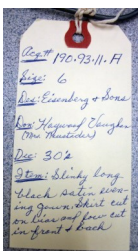 Acq# 190.93.11.A
Size: 6
Des: Eisenberg & Sons
Don: Haywood Vaughan
(Mrs.
Dec: 30's
Item: Slinky long
black satin even-
ing gown. Skirt cut
on bias and low cut
in front & back